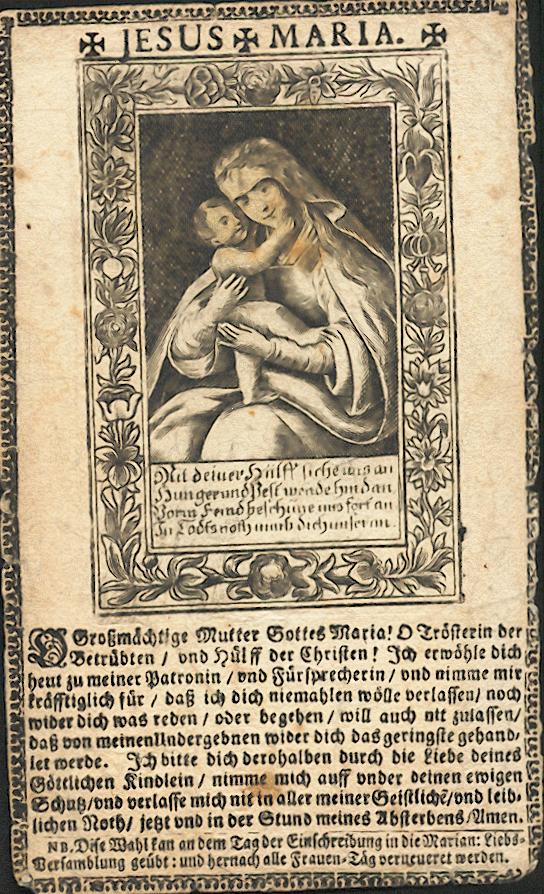 ✠ JESUS ✠ MARIA. ✠
Mit deiner Hülff siehe uns an
Hunger und Pest wende hindan
Vorm Feind beschüze uns fort an
In Todts noth nimb dich unser an.
O Großmächtige Mutter Gottes Maria! O Trösterin der
Betrübten / vnd Hülff der Christen! Ich erwöhle dich
heut zu meiner Patronin / vnd Fürsprecherin / vnd nimme mir
kräfftiglich für / daß ich dich niemahlen wölle verlassen / noch
wider dich was reden / oder begehen / will auch nit zulassen /
daß von meinen Undergebnen wider dich das geringste gehand-
let werde. Ich bitte dich derohalben durch die Liebe deines
Göttlichen Kindlein / nimme mich auff vnder deinen ewigen
Schutz / vnd verlasse mich nit in aller meiner Geistlichē / vnd leib-
lichen Noth / jetzt vnd in der Stund meines Absterbens / Amen.
NB. Dise Wahl kan an dem Tag der Einschreibung in die Marian: Liebs-
Versamblung geübt: und hernach alle Frauen-Täg verneueret werden.